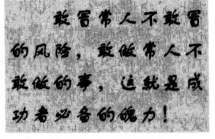 敢冒常人不敢冒
的风险，敢做常人不
敢做的事，这就是成
功者必备的魄力！